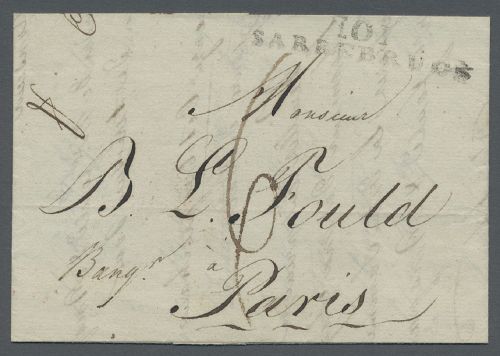 101
SARREBRUCK
Monsieur
B. L. Fould
6
Banq.r à
Paris